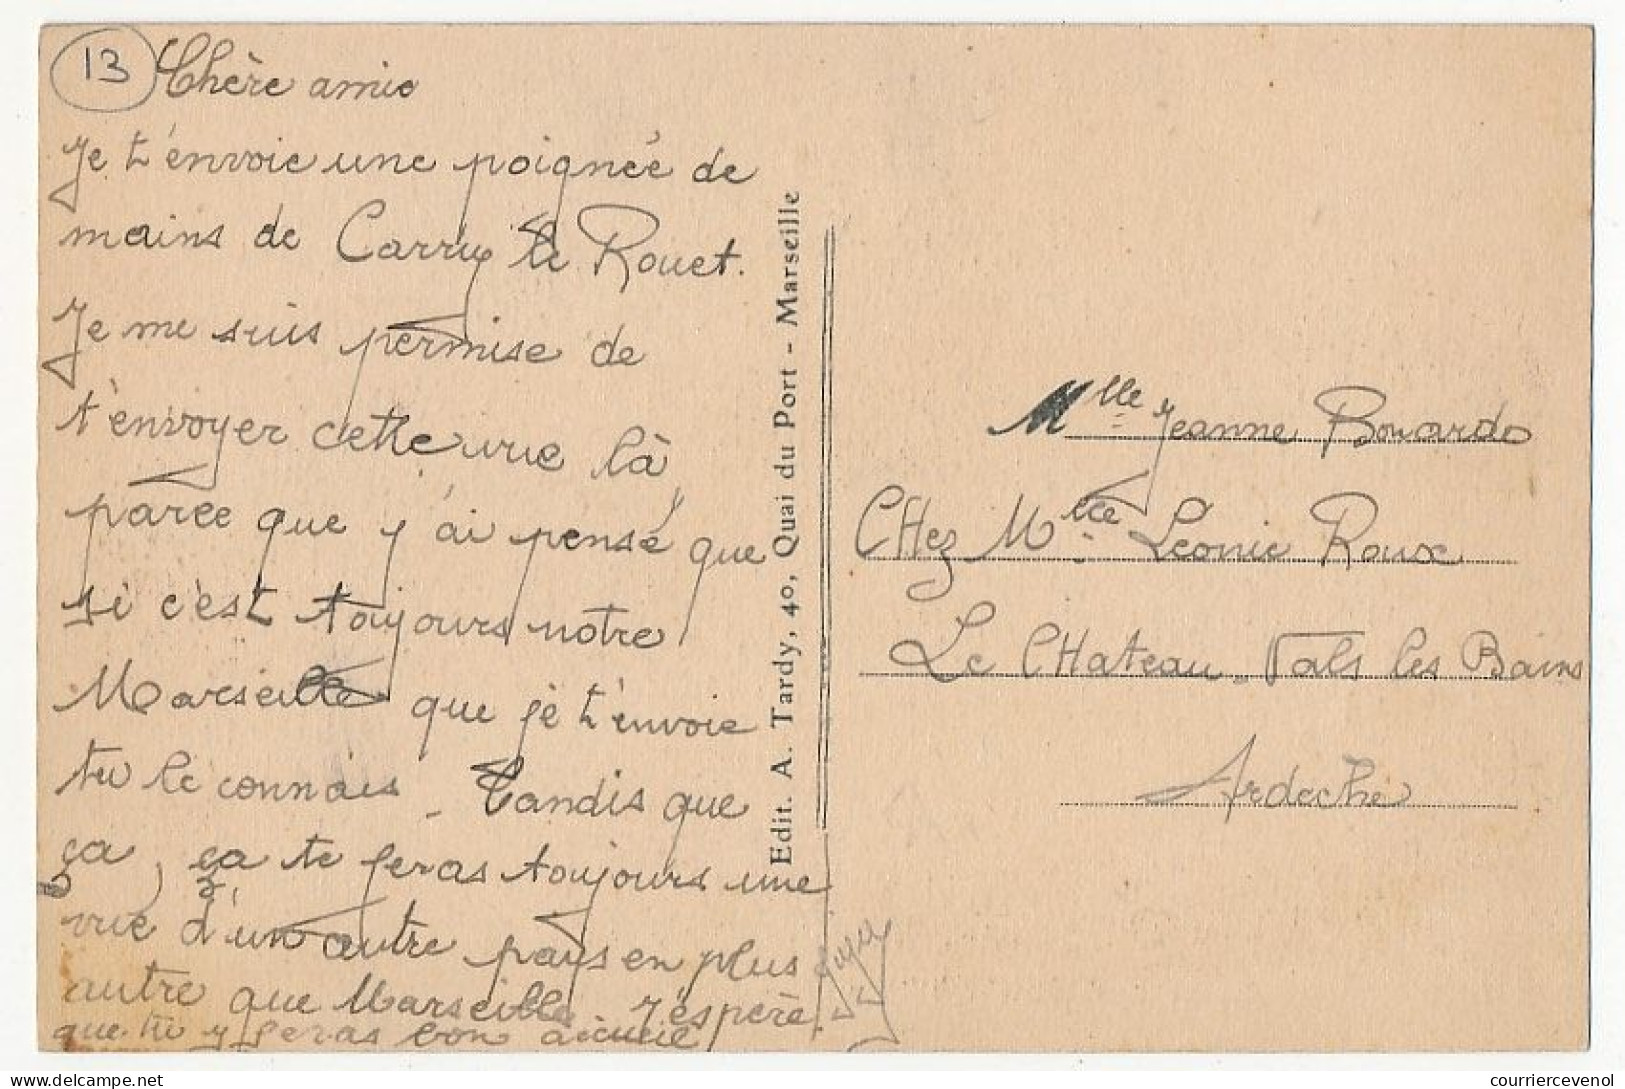 13
Chère amie
Je t'envoie une poignée de
mains de Carry le Rouet.
Je me suis permise de
t'envoyer cette vue là
parée que j'ai pensé que
si c'est toujours notre
Marseille que je t'envoie
tu le connais - Tandis que
ça, ça te feras toujours une
vue d'un autre pays en plus
autre que Marseille. J'éspère
que tu y feras bon accueil
Edit. A. Tardy, 40, Quai du Port - Marseille
Mlle Jeanne Bonardo
CHez Mlle Léonie Roux
Le CHateau - Vals les Bains
Ardeche
courriercevenol
www.delcampe.net